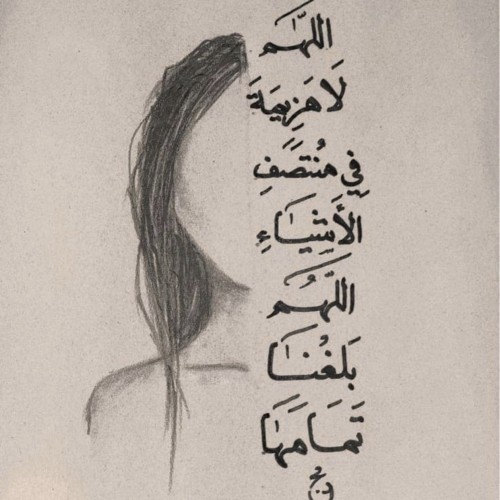 اللّهم
لَا هَزِيمَةَ
فِي مُنتَصَفِ
الأَشيَاءِ
اللَّهُم
بَلغْنَا
تَمَامَهَا